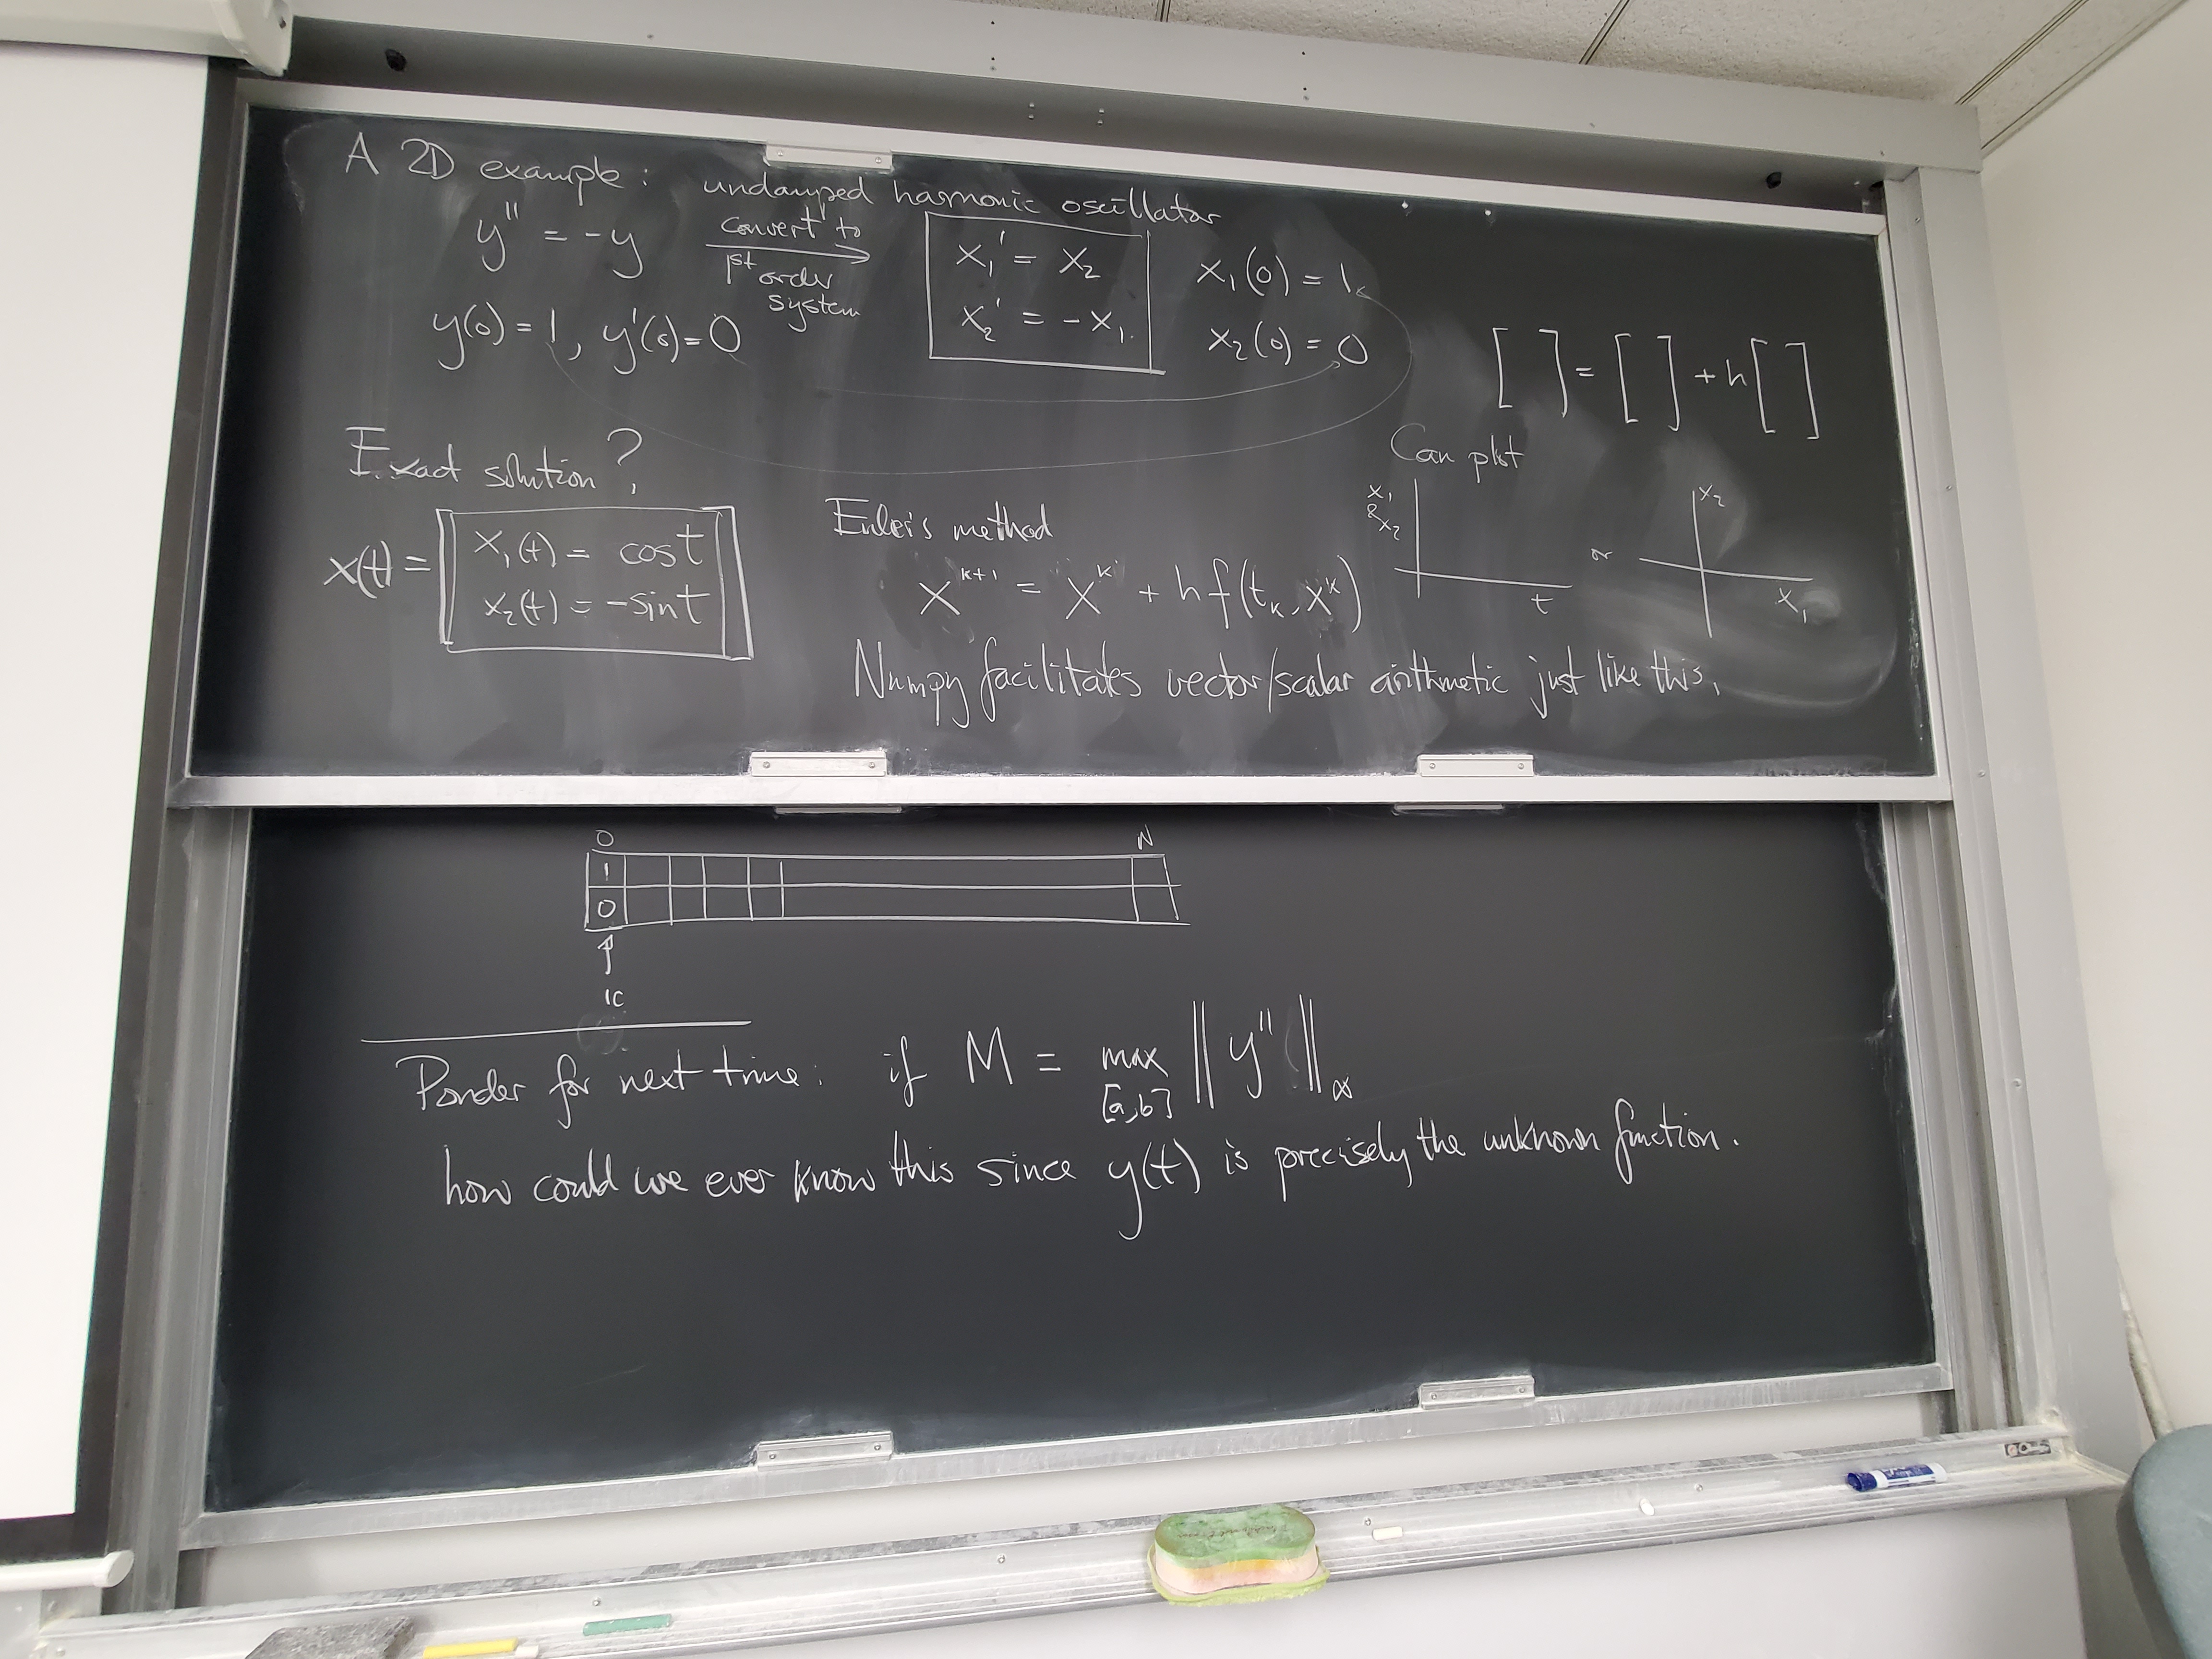 A 2D example: undamped harmonic oscillator
y'' = -y
convert to
1st order
system
x₁' = x₂
x₂' = -x₁
x₁(0) = 1
x₂(0) = 0
y(0) = 1, y'(0) = 0
[ ] = [ ] + h[ ]
Exact solution?
x(t) =
x₁(t) = cos t
x₂(t) = -sin t
Euler's method
x^{k+1} = x^k + h f(t_k, x^k)
Can plot
x₁
& x₂
t
or
x₂
x₁
Numpy facilitates vector/scalar arithmetic just like this.
0 N
1
0
IC
Ponder for next time: if M = max ‖y''‖_∞
[a,b]
how could we ever know this since y(t) is precisely the unknown function.